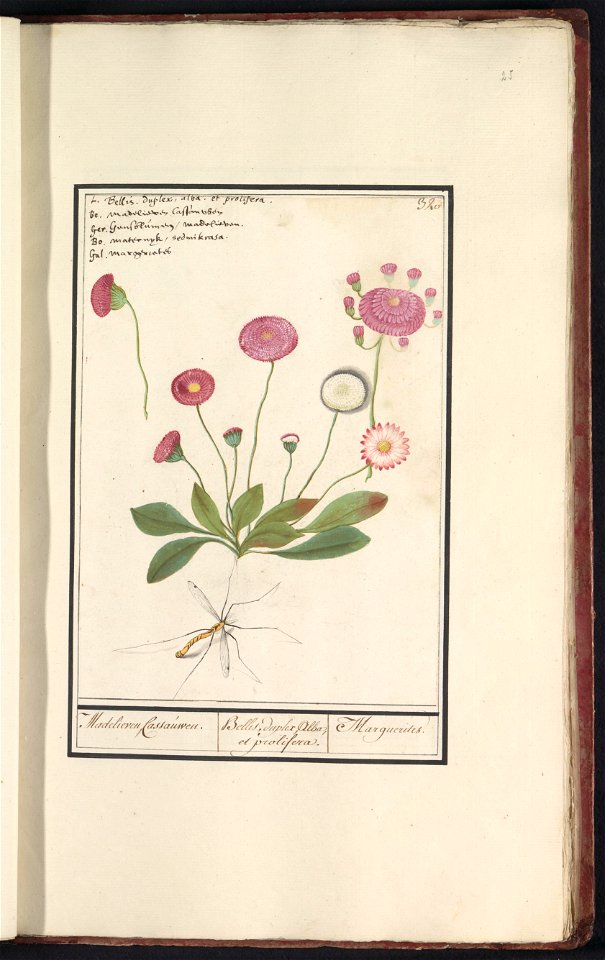 25
L. Bellis. duplex, alba. et prolifera.
be. madelieven Castouwen
Ger. Gensblumen/ madelieven.
Bo. maternyk/ sedmikrasa.
Gal. margerietes
32
Madelieven Castauwen.
Belles, duplex Alba,
et prolifera.
Marguerites.